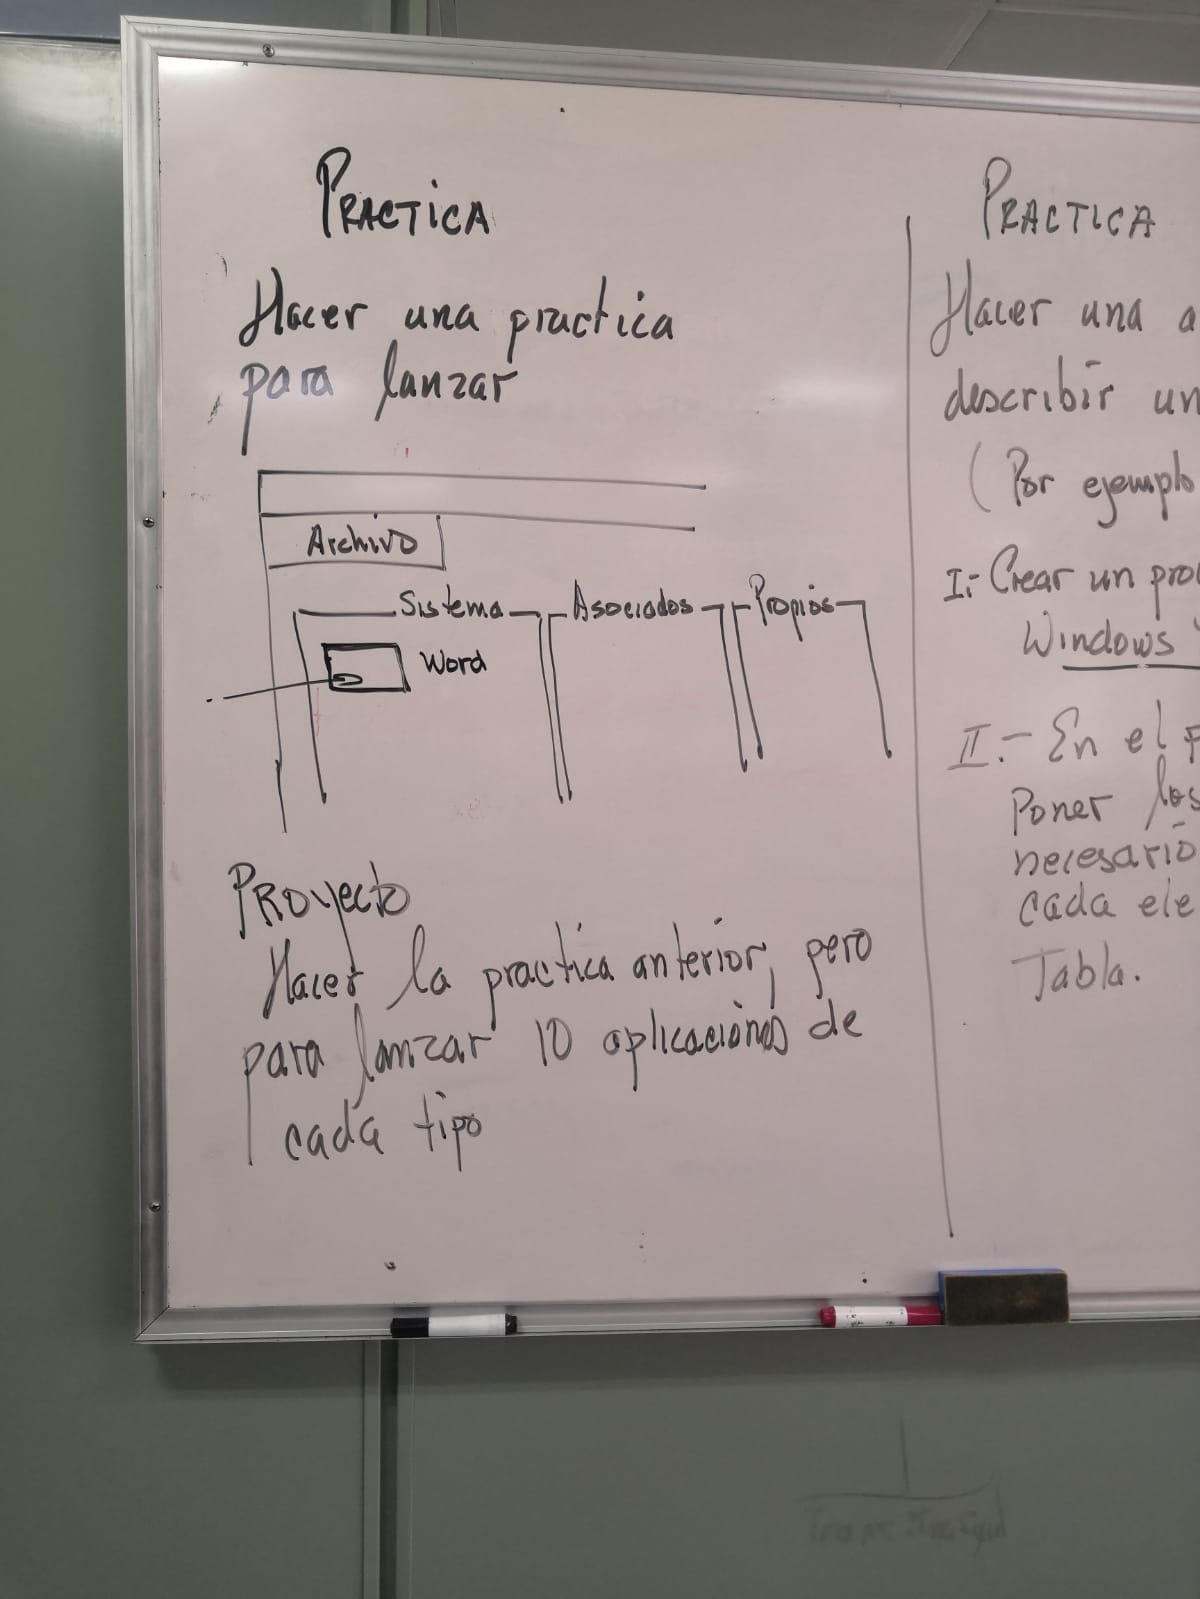 PRACTICA
Hacer una practica
para lanzar
Archivo
Sistema
Asociados
Propios
Word
Proyecto
Hacer la practica anterior, pero
para lanzar 10 aplicaciones de
cada tipo
PRACTICA
Hacer una a
describir un
(Por ejemplo
I.- Crear un pro
Windows
II.- En el F
Poner los
necesario
cada ele
Tabla.